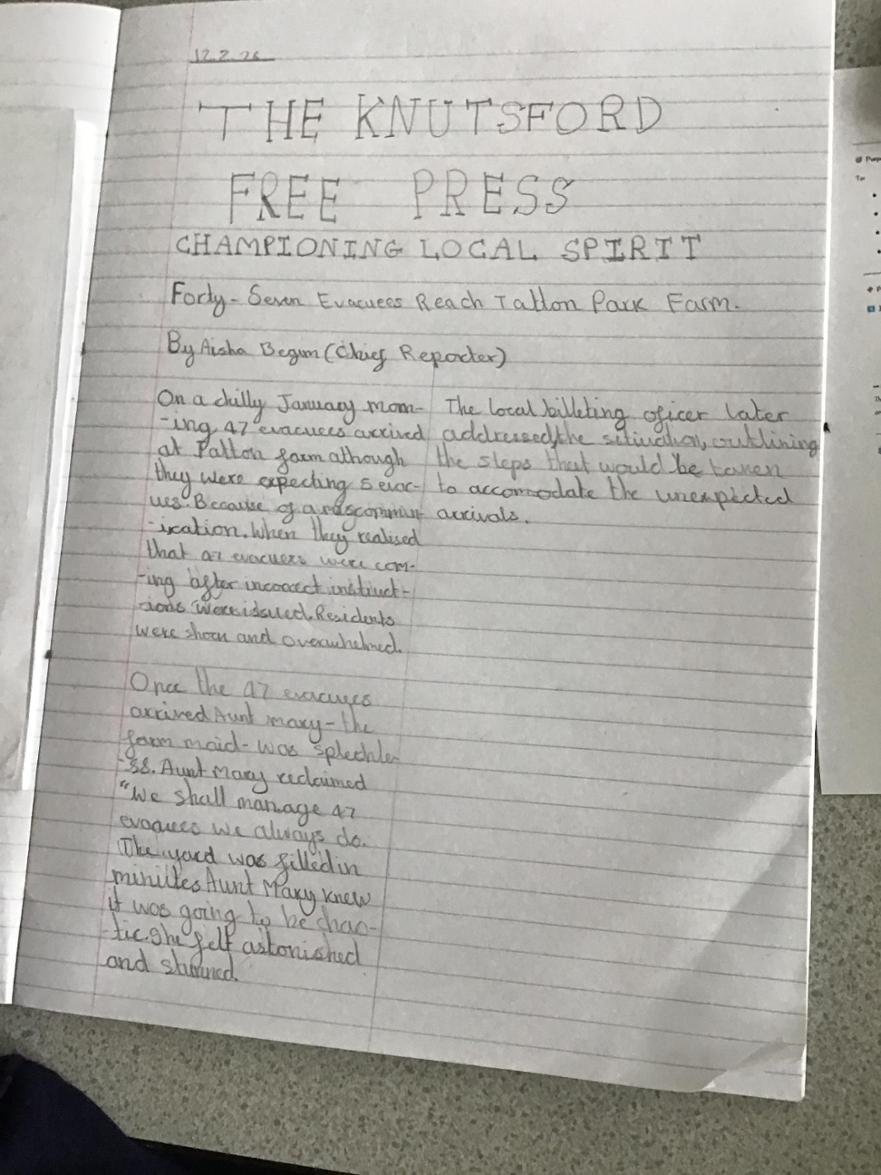 12.2.26
THE KNUTSFORD
FREE PRESS
CHAMPIONING LOCAL SPIRIT
Forty-Seven Evacuees Reach Tatton Park Farm.
By Aisha Begum (Chief Reporter)
On a chilly January morn-
-ing, 47 evacuees arrived
at Patton farm although
they were expecting 5 evac-
ues. Because of a miscommun
-ication. When they realised
that 47 evacuees were com-
-ing after incorrect instruct-
-ions were issued. Residents
were shock and overwhelmed.
Once the 47 evacuees
arrived Aunt Mary - the
farm maid - was splechle
-ss. Aunt Mary reclaimed
"We shall manage 47
evacuees we always do.
The yard was filled in
minuites Aunt Mary knew
it was going to be chao-
-tic. She felt astonished
and stunned.
The local billeting oficer later
addressed the situation, outlining
the steps that would be taken
to accomodate the unexpected
arrivals.